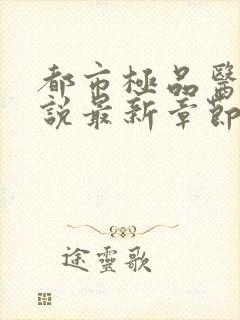 都市極品醫
說最新章節
途靈歌